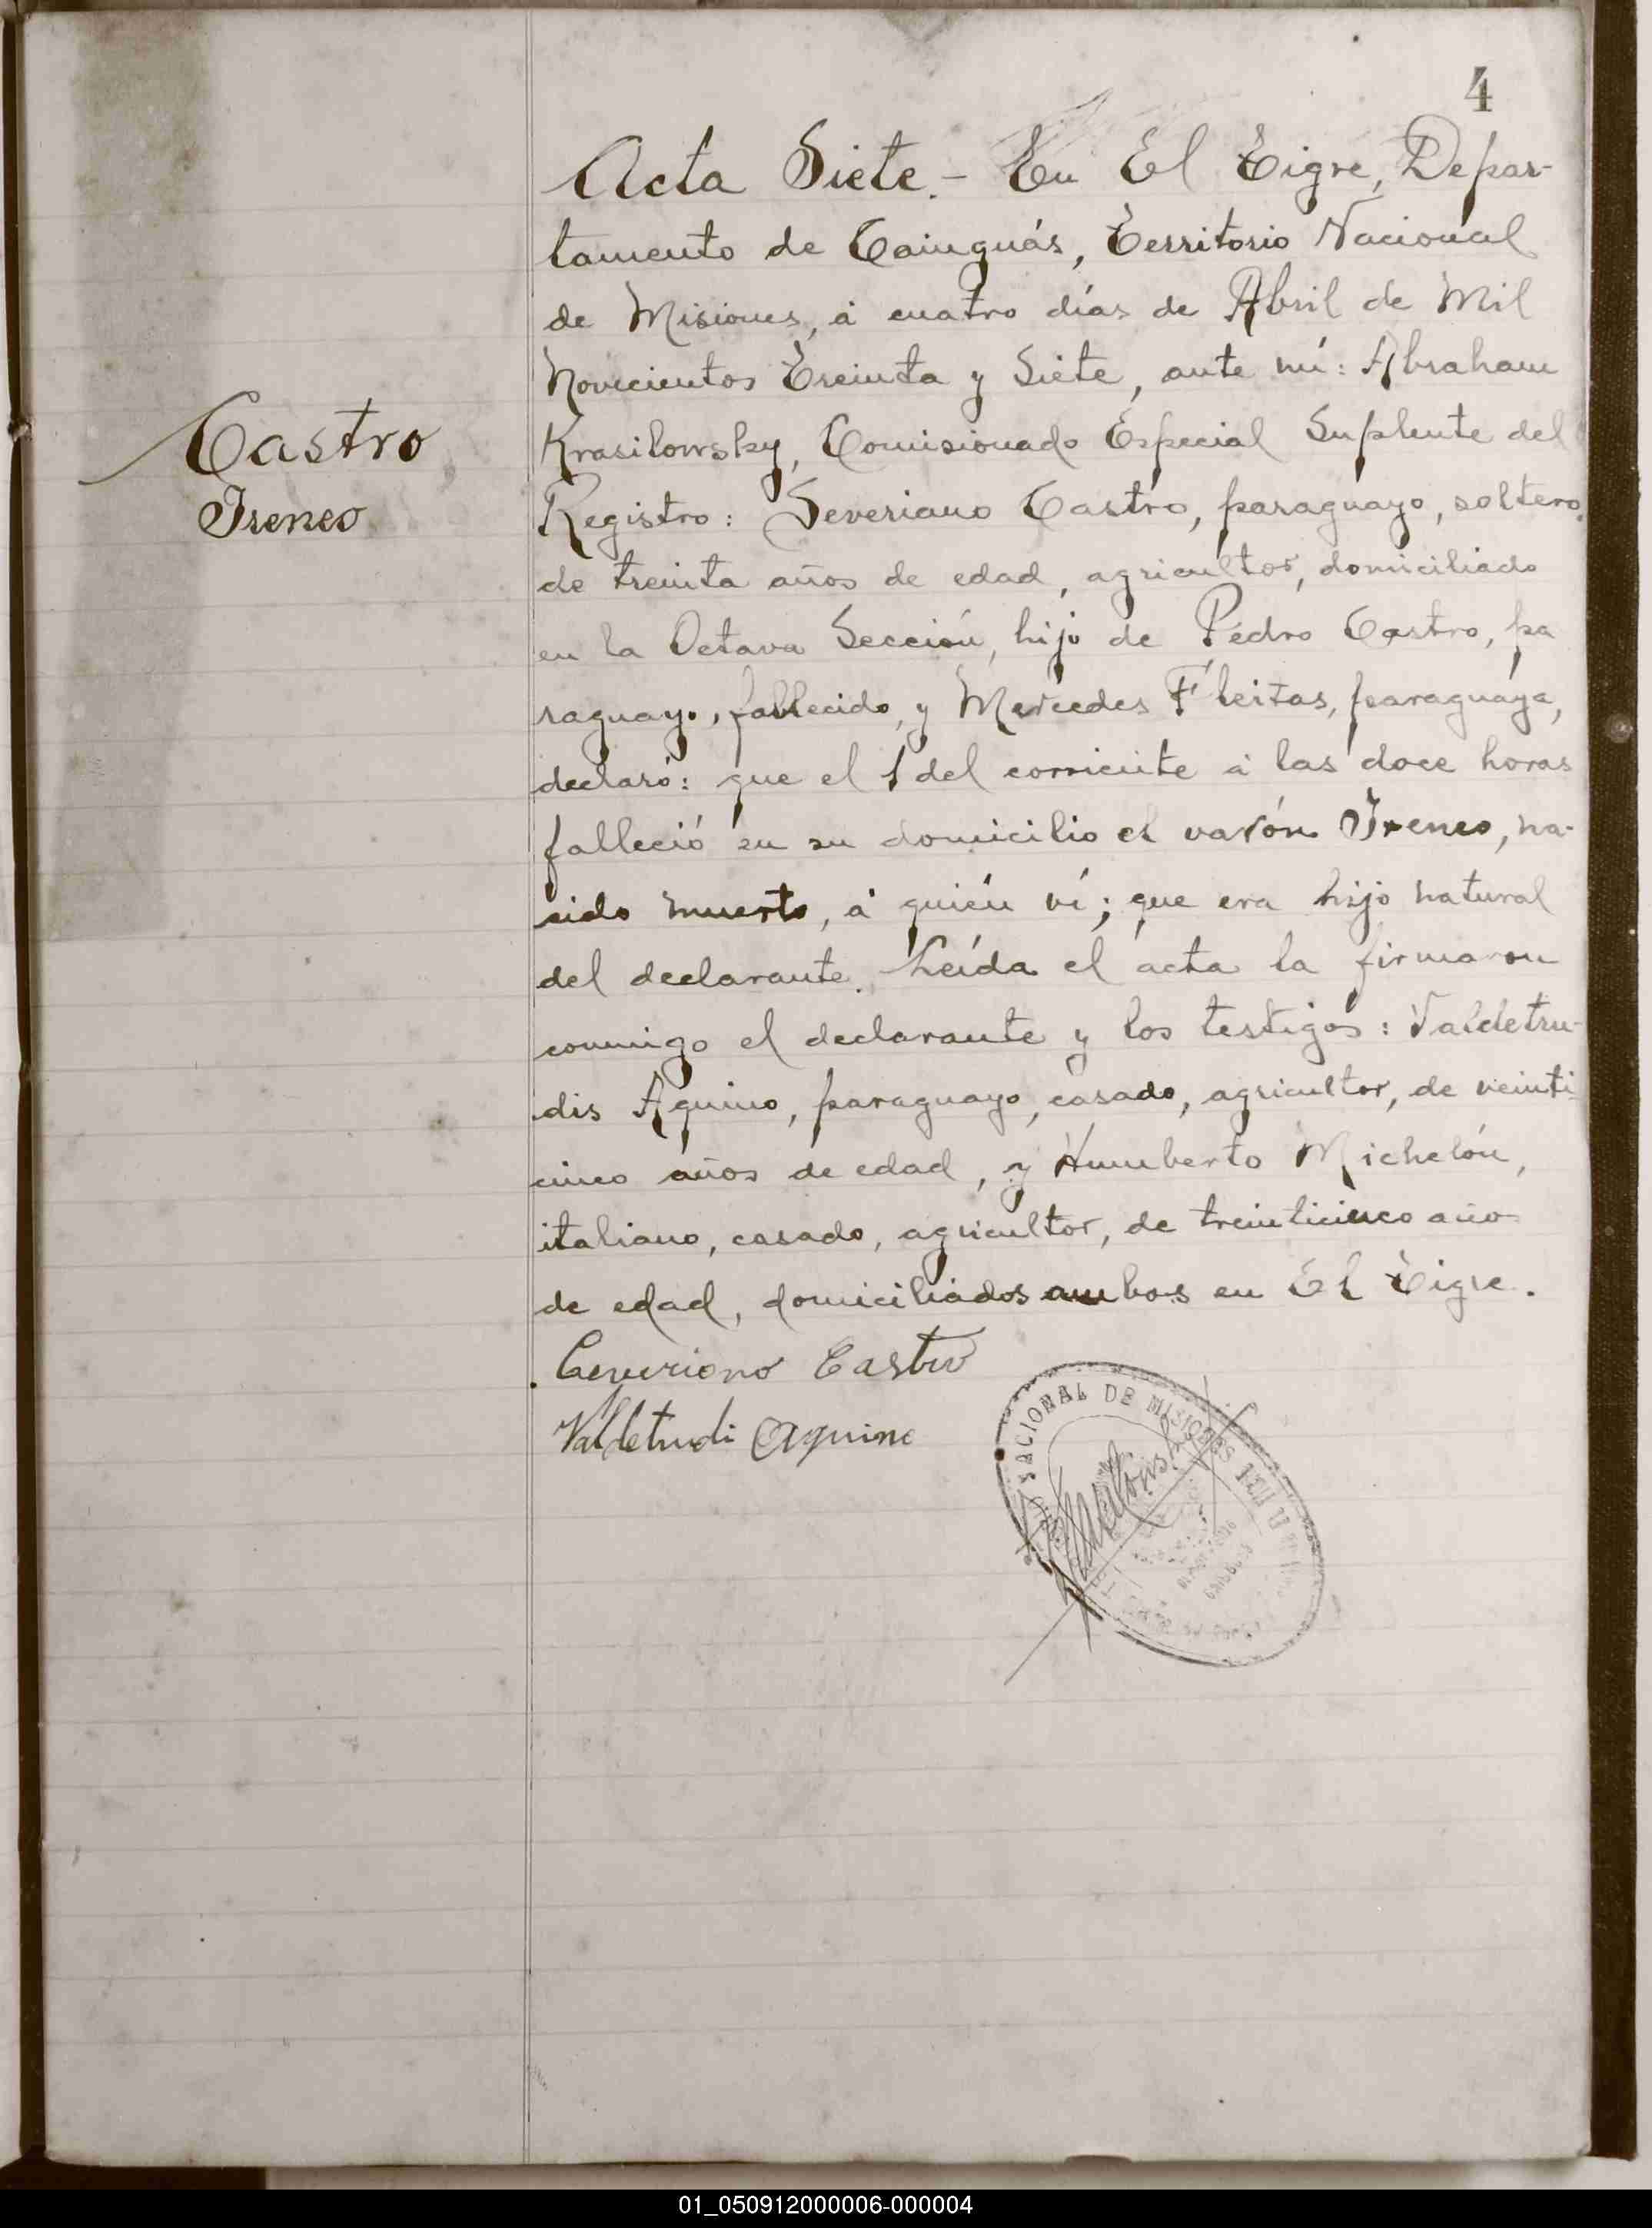 4
Acta Siete.- En El Tigre, Depar-
tamento de Cainguás, Territorio Nacional
de Misiones, á cuatro días de Abril de Mil
Novecientos Treinta y Siete, ante mí: Abraham
Castro
Krasilowsky, Comisionado Especial Suplente del
Ireneo
Registro: Severiano Castro, paraguayo, soltero,
de treinta años de edad, agricultor, domiciliado
en la Octava Sección, hijo de Pedro Castro, pa
raguayo, fallecido, y Mercedes Fleitas, paraguaya,
declaró: que el 1 del corriente á las doce horas
falleció en su domicilio el varón Ireneo, na-
cido muerto, á quién ví; que era hijo natural
del declarante. Leída el acta la firmaron
conmigo el declarante y los testigos: Valdetru-
dis Aquino, paraguayo, casado, agricultor, de veinti
cinco años de edad, y Humberto Michelón,
italiano, casado, agricultor, de treinticinco año
de edad, domiciliados ambos en El Tigre.
Ceveriano Castro
Valdetrudi Aquino
NACIONAL DE MISIONES
01_050912000006-000004